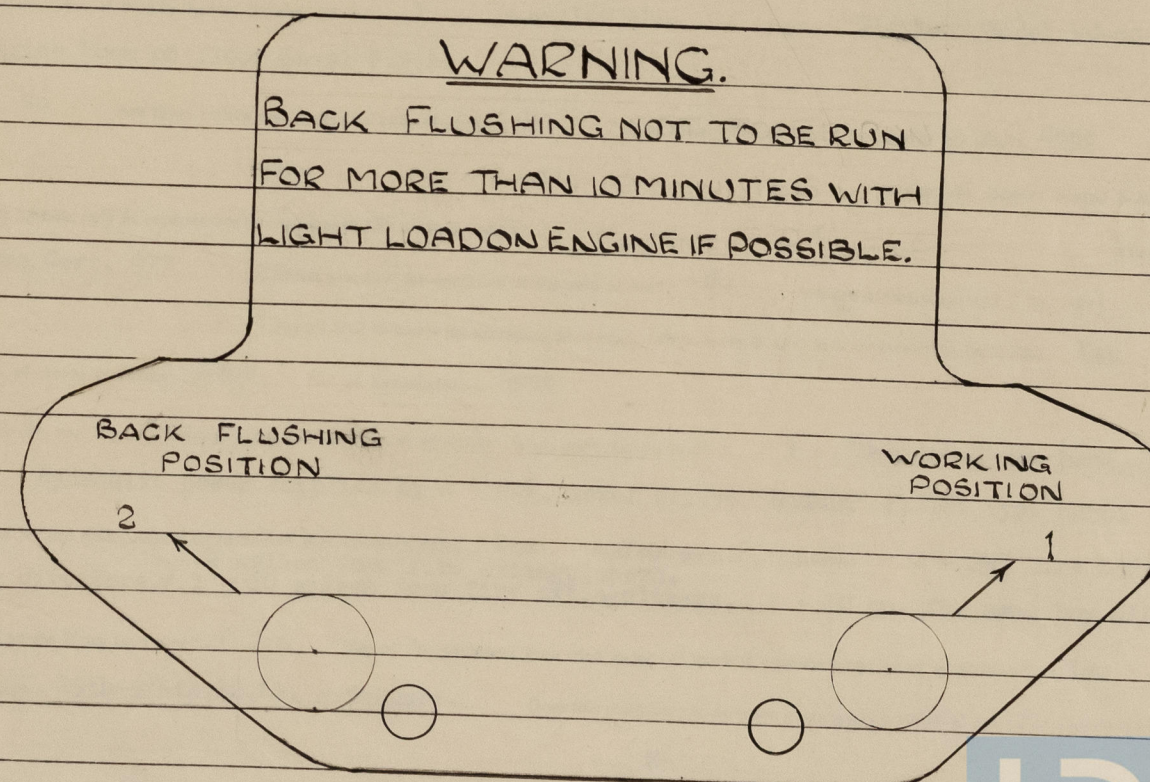 WARNING.
BACK FLUSHING NOT TO BE RUN
FOR MORE THAN 10 MINUTES WITH
LIGHT LOAD ON ENGINE IF POSSIBLE.
BACK FLUSHING
POSITION
2
WORKING
POSITION
1